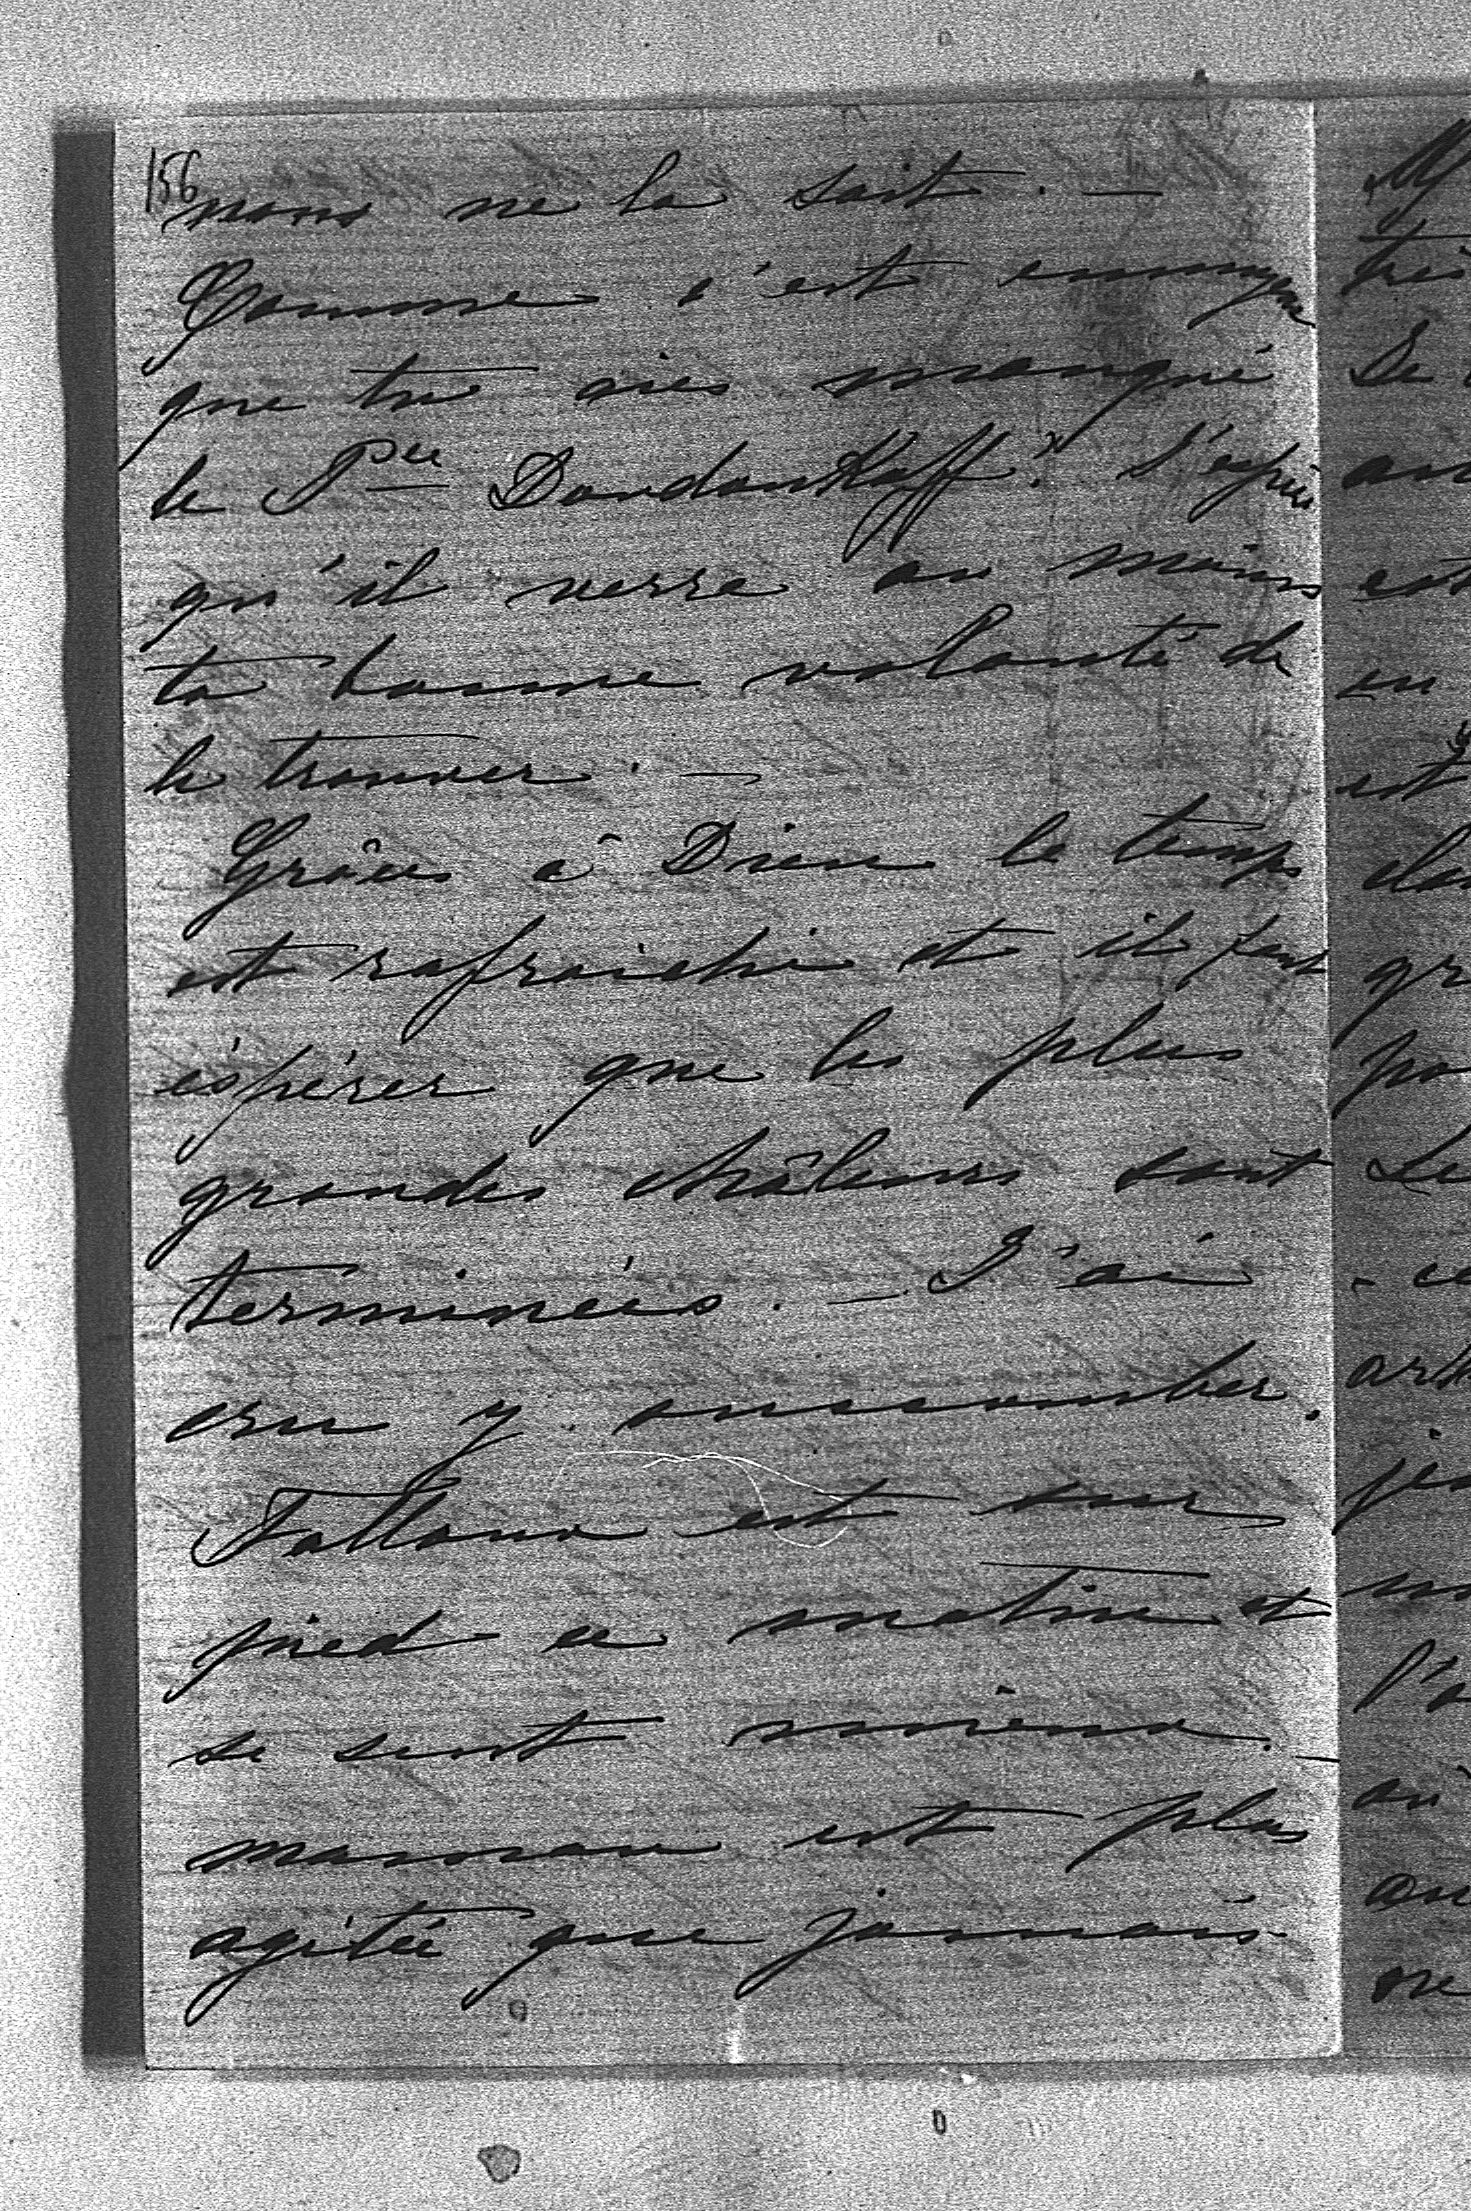 156
nous ne la sait. —
Comme c'est ennuyeu
que tu aies manqué
le Pce Dondoukoff! J'espère
qu'il verra au moins
ta bonne volonté de
le trouver. —
Grâces à Dieu le temps
est rafraichi et il faut
éspérer que les plus
grandes châleurs sont
terminées. — J'ai
cru y succomber.
Tattana est sur
pied ce matin et
se sent mieux. —
maman est plus
agitée que jamais